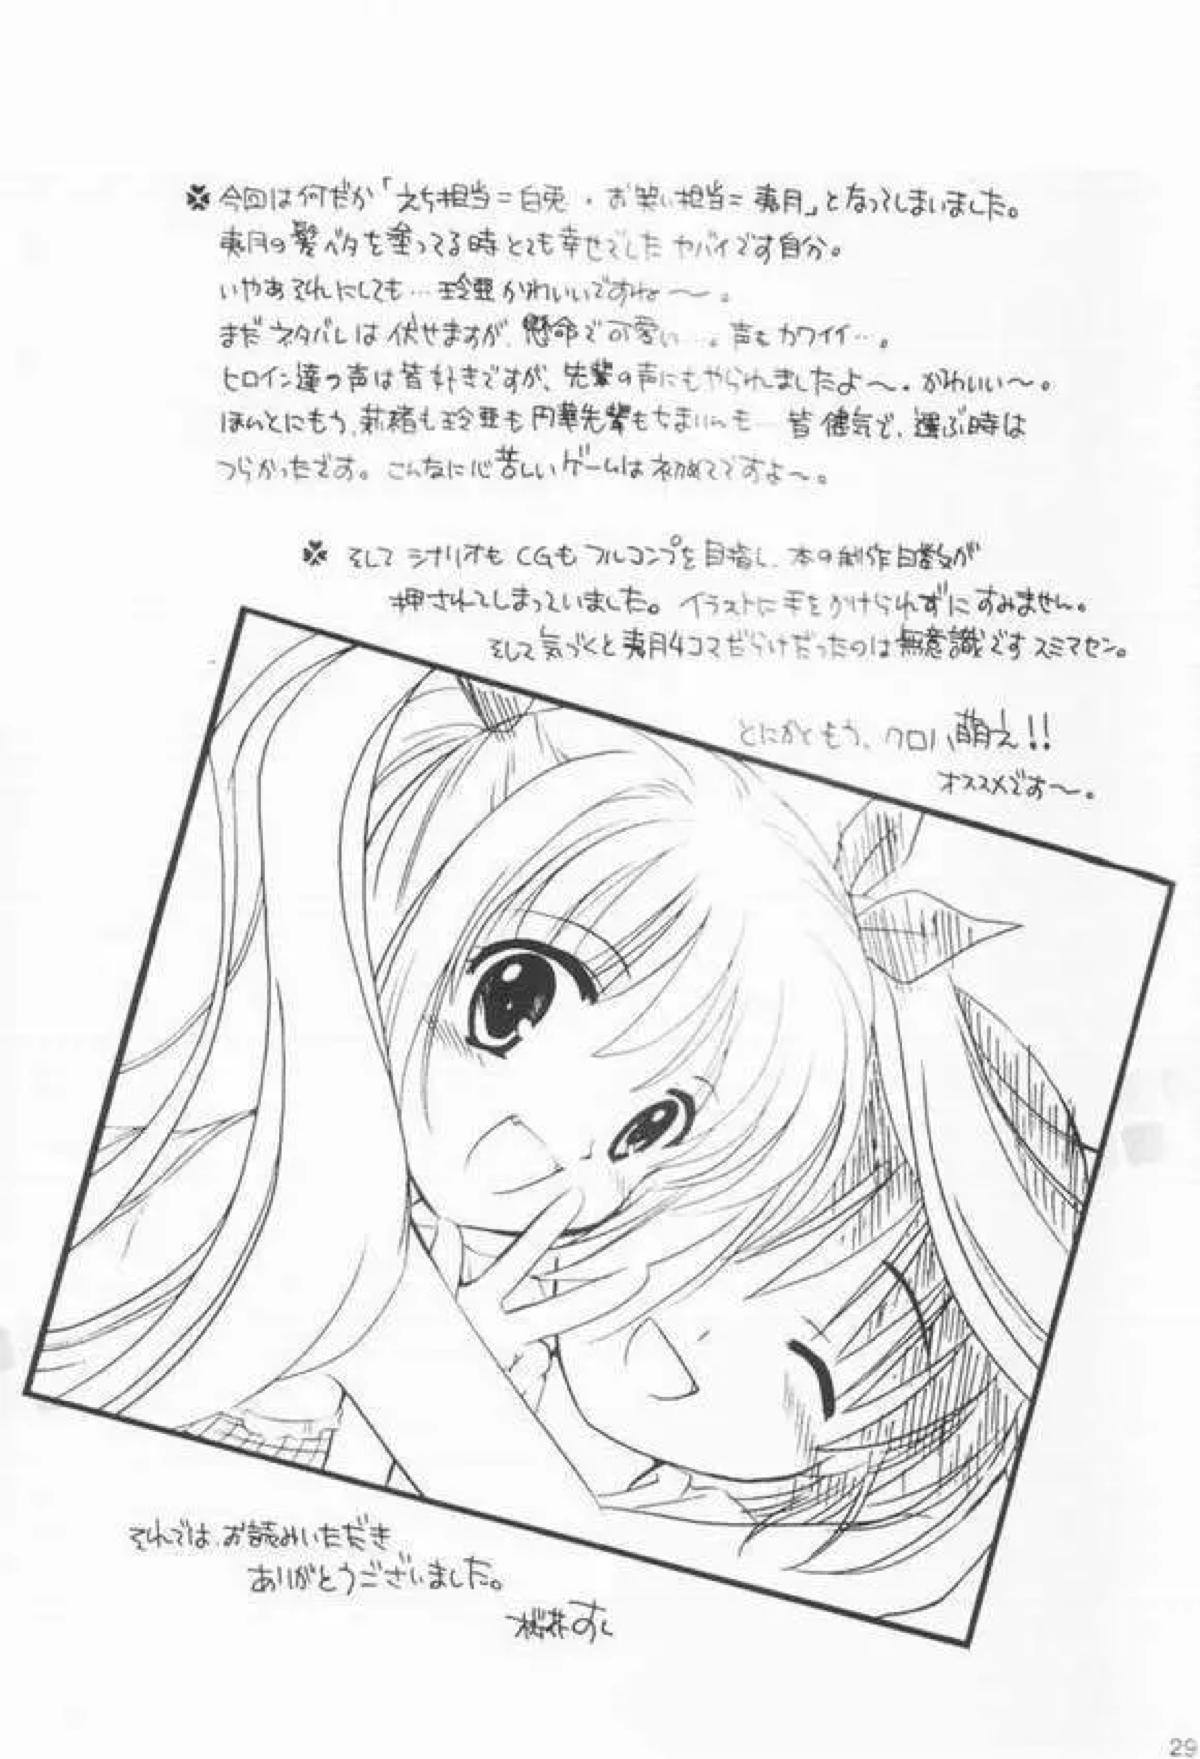 今回は何だか「えち担当=白兎・お笑い担当=夷月」となってしまいました。
夷月の髪ベタを塗ってる時とても幸せでした ヤバイです自分。
いやあそれにしても…玲亜かわいいですね〜。
まだネタバレは伏せますが、懸命で可愛い…。声もカワイイ…。
ヒロイン達の声は皆好きですが、先輩の声にもやられましたよ〜。かわいい〜。
ほんとにもう、莉織も玲亜も円華先輩もちまりんも…皆健気で、選ぶ時は
つらかったです。こんなに心苦しいゲームは初めてですよ〜。
そしてシナリオもCGもフルコンプを目指し、本の制作日数が
押されてしまっていました。イラストに手をかけられずにすみません。
そして気づくと夷月4コマだらけだったのは無意識です スミマセン。
とにかくもう、クロハ萌え!!
オススメです〜。
それでは、お読みいただき
ありがとうございました。
桜花すし
29